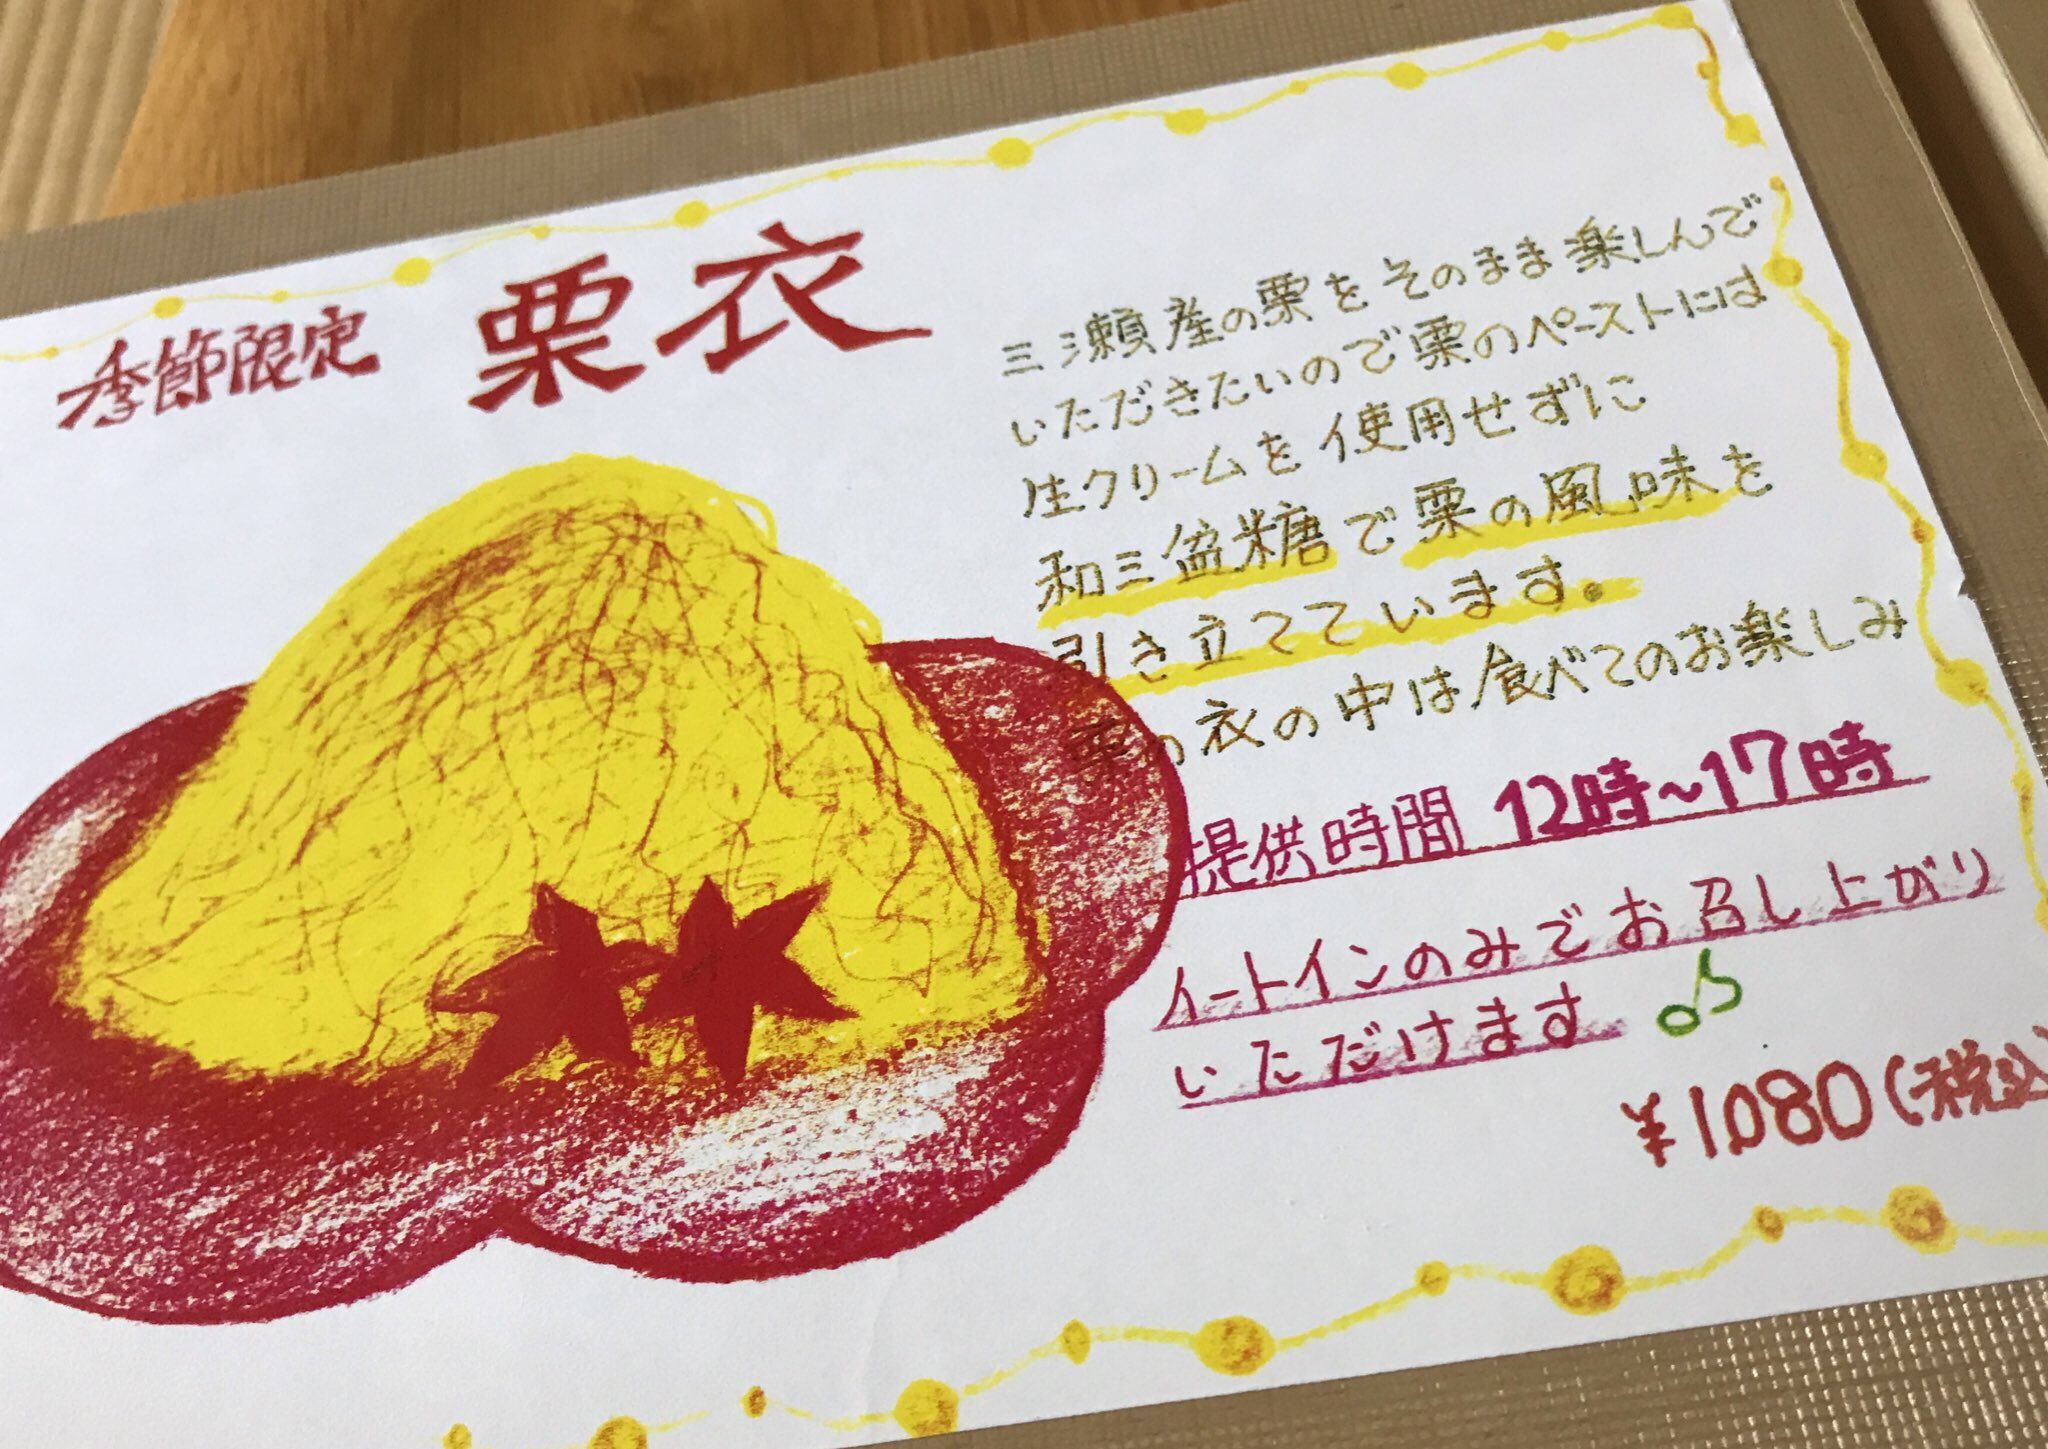 季節限定 栗衣
三瀬産の栗をそのまま楽しんで
いただきたいので栗のペーストには
生クリームを使用せずに
和三盆糖で栗の風味を
引き立てています。
栗の衣の中は食べてのお楽しみ
提供時間 12時～17時
イートインのみでお召し上がり
いただけます♪
¥1080(税込)